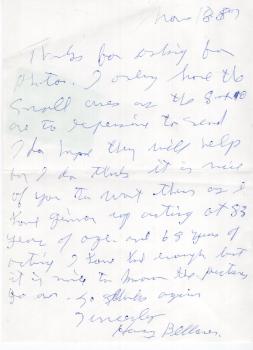 Nov 18 89
Thanks for asking for
photos. I only have the
small ones as the 8x10
are to expensive to send
I do hope they will help
but I do think it is nice
of you to want them as I
have given up acting at 83
years of age and 65 years of
acting I have had enough but
it is nice to know the pictures
go on. So thanks again
Sincerely
Harry Bellaver.